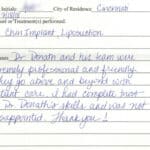 Initials: City of Residence: Cincinnati
or Treatment(s) performed:
Chin Implant, Liposuction
Dr Donath and his team were
tremely professional and friendly.
hey go above and beyond with
tient care. I had complete trust
Dr. Donath's skills and was not
sappointed. Thank you!